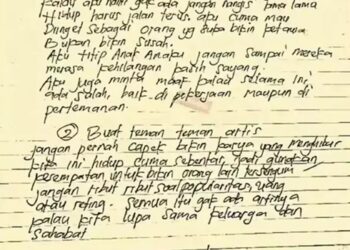 kalau apu hadir gak ada jangan nangis lama lama
Hidup harus jalan terus. apu cuma mau
Dinget sebagai orang yg suka bikin ketawa
Bukan bikin susah.
Aku titip Anak Anaku jangan sampai mereka
merasa kehilangan kasih sayang.
Aku juga minta maaf kalau selama ini
ada salah, baik di pekerjaan maupun di
pertemanan.
② Buat teman teman artis
jangan pernah capek bikin karya yang menghibur
kita ini hidup cuma sebentar, jadi gunakan
kesempatan untuk bikin orang lain tersenyum
jangan ribut ribut soal popularitas, uang
atau reting. Semua itu gak ada artinya
kalau kita lupa sama keluarga dan
Sahabat